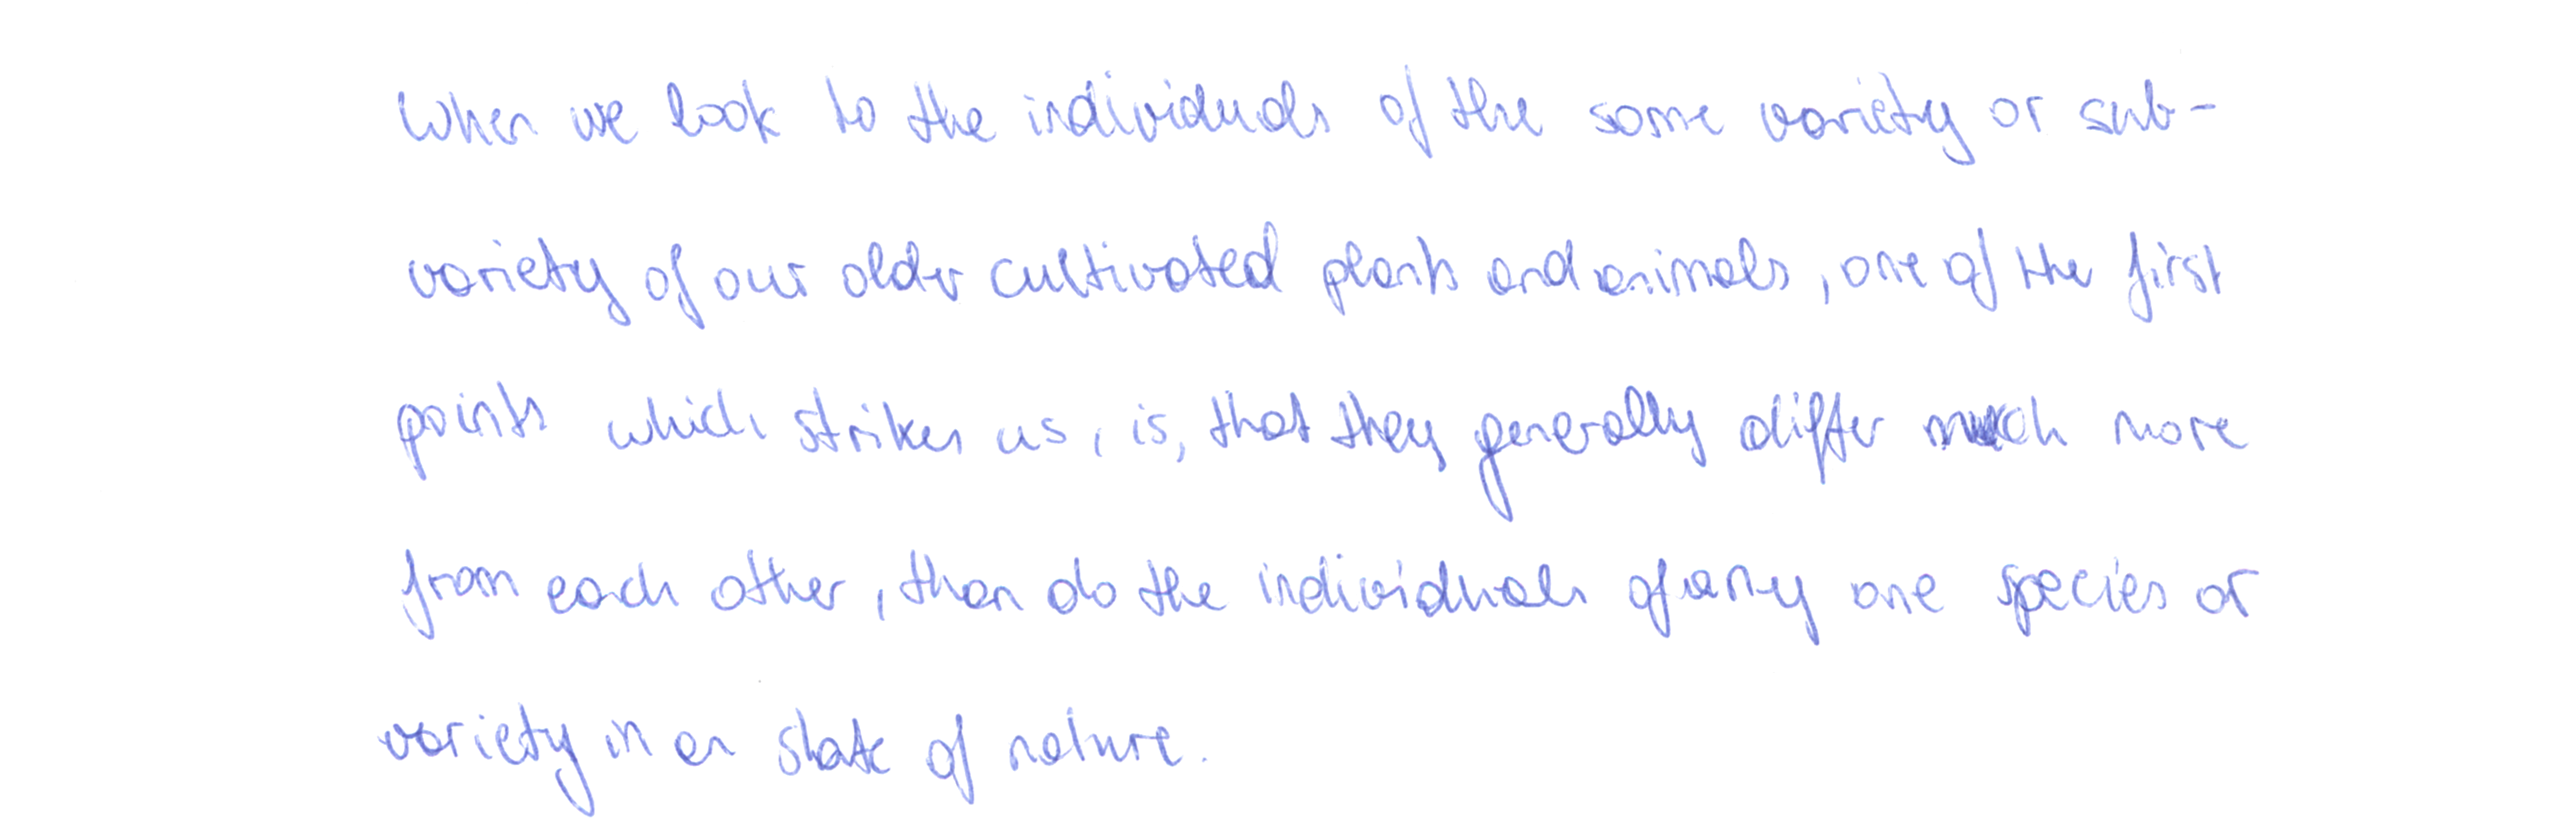 When we look to the individuals of the same variety or sub-
variety of our older cultivated plants and animals, one of the first
points which strikes us, is, that they generally differ much more
from each other, than do the individuals of any one species or
variety in an state of nature.